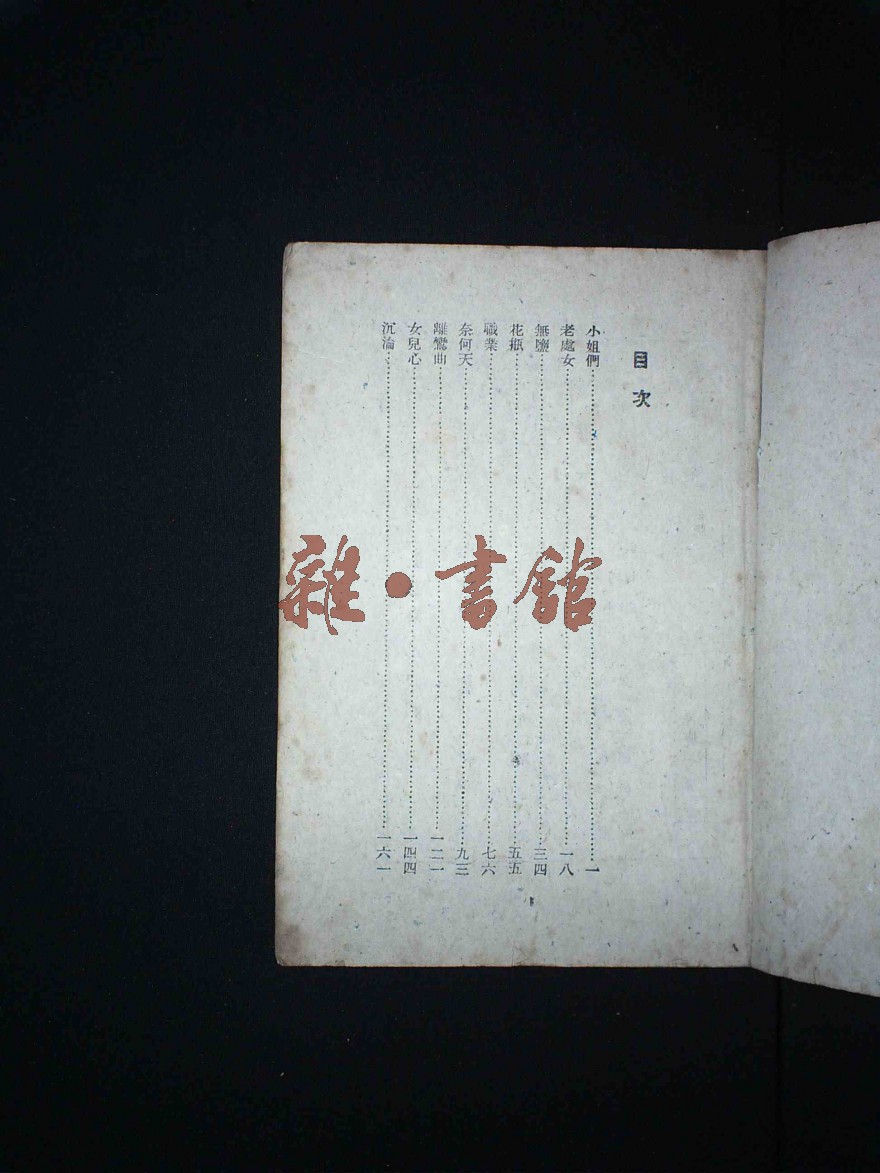 目次
小姐們⋯⋯一
老處女⋯⋯一八
無鹽⋯⋯三四
花瓶⋯⋯五五
職業⋯⋯七六
奈何天⋯⋯九三
離鸞曲⋯⋯一二一
女兒心⋯⋯一四四
沉淪⋯⋯一六一
雜•書館